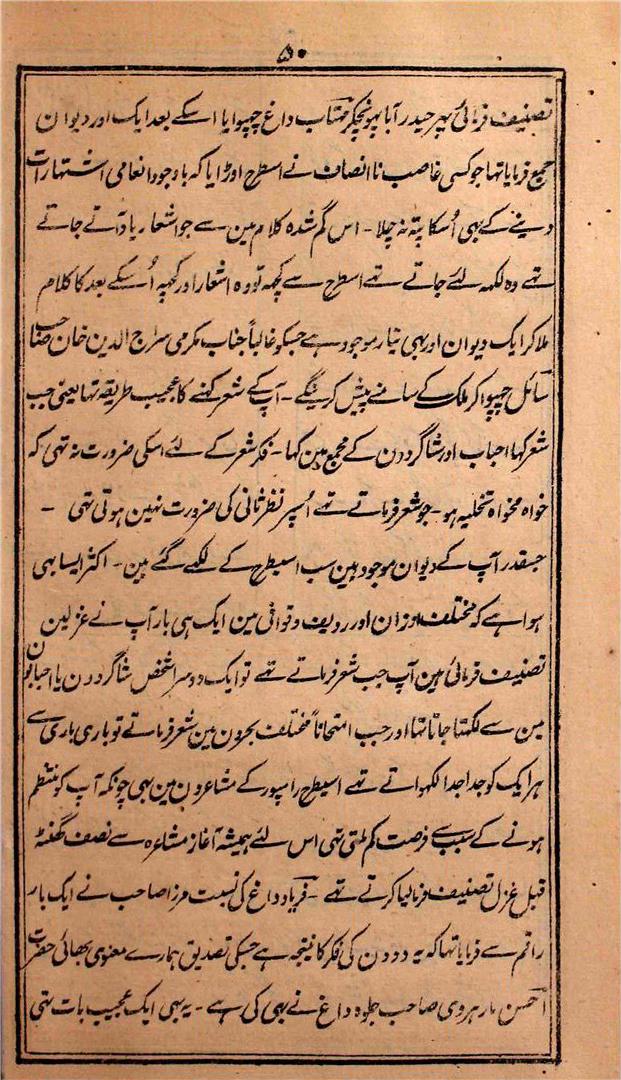 ۵۰
تصنیف فرمائی پہر حیدرآباد پہونچکر مہتاب داغ چہپوایا اسکے بعد ایک اور دیوان
جمع فرمایا تہا جو کسی غاصب ناانصاف نے اسطرح اوڑایا کہ باوجود انعامی اشتہارات
دینے کے بہی اُسکا پتہ نہ چلا۔ اس گم شدہ کلام مین سے جو اشعار یاد آتے جاتے
تہے وہ لکہہ لئے جاتے تہے اسطرح سے کچہہ تو وہ اشعار اور کچہہ اُسکے بعد کا کلام
ملاکر ایک دیوان اور بہی تیار موجود ہے جسکو غالباً جناب مکرمی سراج الدین خان صاحب
سائل چہپواکر ملک کے سامنے پیش کرینگے۔ آپ کے شعر کہنے کا عجیب طریقہ تہا یعنی جب
شعر کہا احباب اور شاگردون کے مجمع مین کہا۔ فکر شعر کے لئے اسکی ضرورت نہ تہی کہ
خواہ مخواہ تخلیہ ہو۔ جو شعر فرماتے تہے اُسپر نظر ثانی کی ضرورت نہین ہوتی تہی ۔
جسقدر آپ کے دیوان موجود ہین سب اسیطرح کے لکہے گئے ہین۔ اکثر ایسا بہی
ہوا ہے کہ مختلف اوزان اور ردیف و قوافی مین ایک ہی بار آپ نے غزلین
تصنیف فرمائی ہین آپ جب شعر فرماتے تہے تو ایک دوسرا شخص شاگردون یا احبابون
مین سے لکہتا جاتا تہا اور جب امتحاناً مختلف بحرون مین شعر فرماتے تو باری باری سے
ہر ایک کو جدا جدا لکہواتے تہے اسیطرح رامپور کے مشاعرون مین بہی چونکہ آپ کو منتظم
ہونے کے سبب سے فرصت کم ملتی تہی اس لئے ہمیشہ آغاز مشاعرہ سے نصف گھنٹہ
قبل غزل تصنیف فرمالیا کرتے تہے ۔ فریاد داغ کی نسبت مرزا صاحب نے ایک بار
راقم سے فرمایا تہا کہ یہ دو دن کی فکر کا نتیجہ ہے جسکی تصدیق ہمارے معنوی بھائی حضرت
احسن مارہروی صاحب جلوہ داغ نے بہی کی ہے ۔ یہ بہی ایک عجیب بات تہی